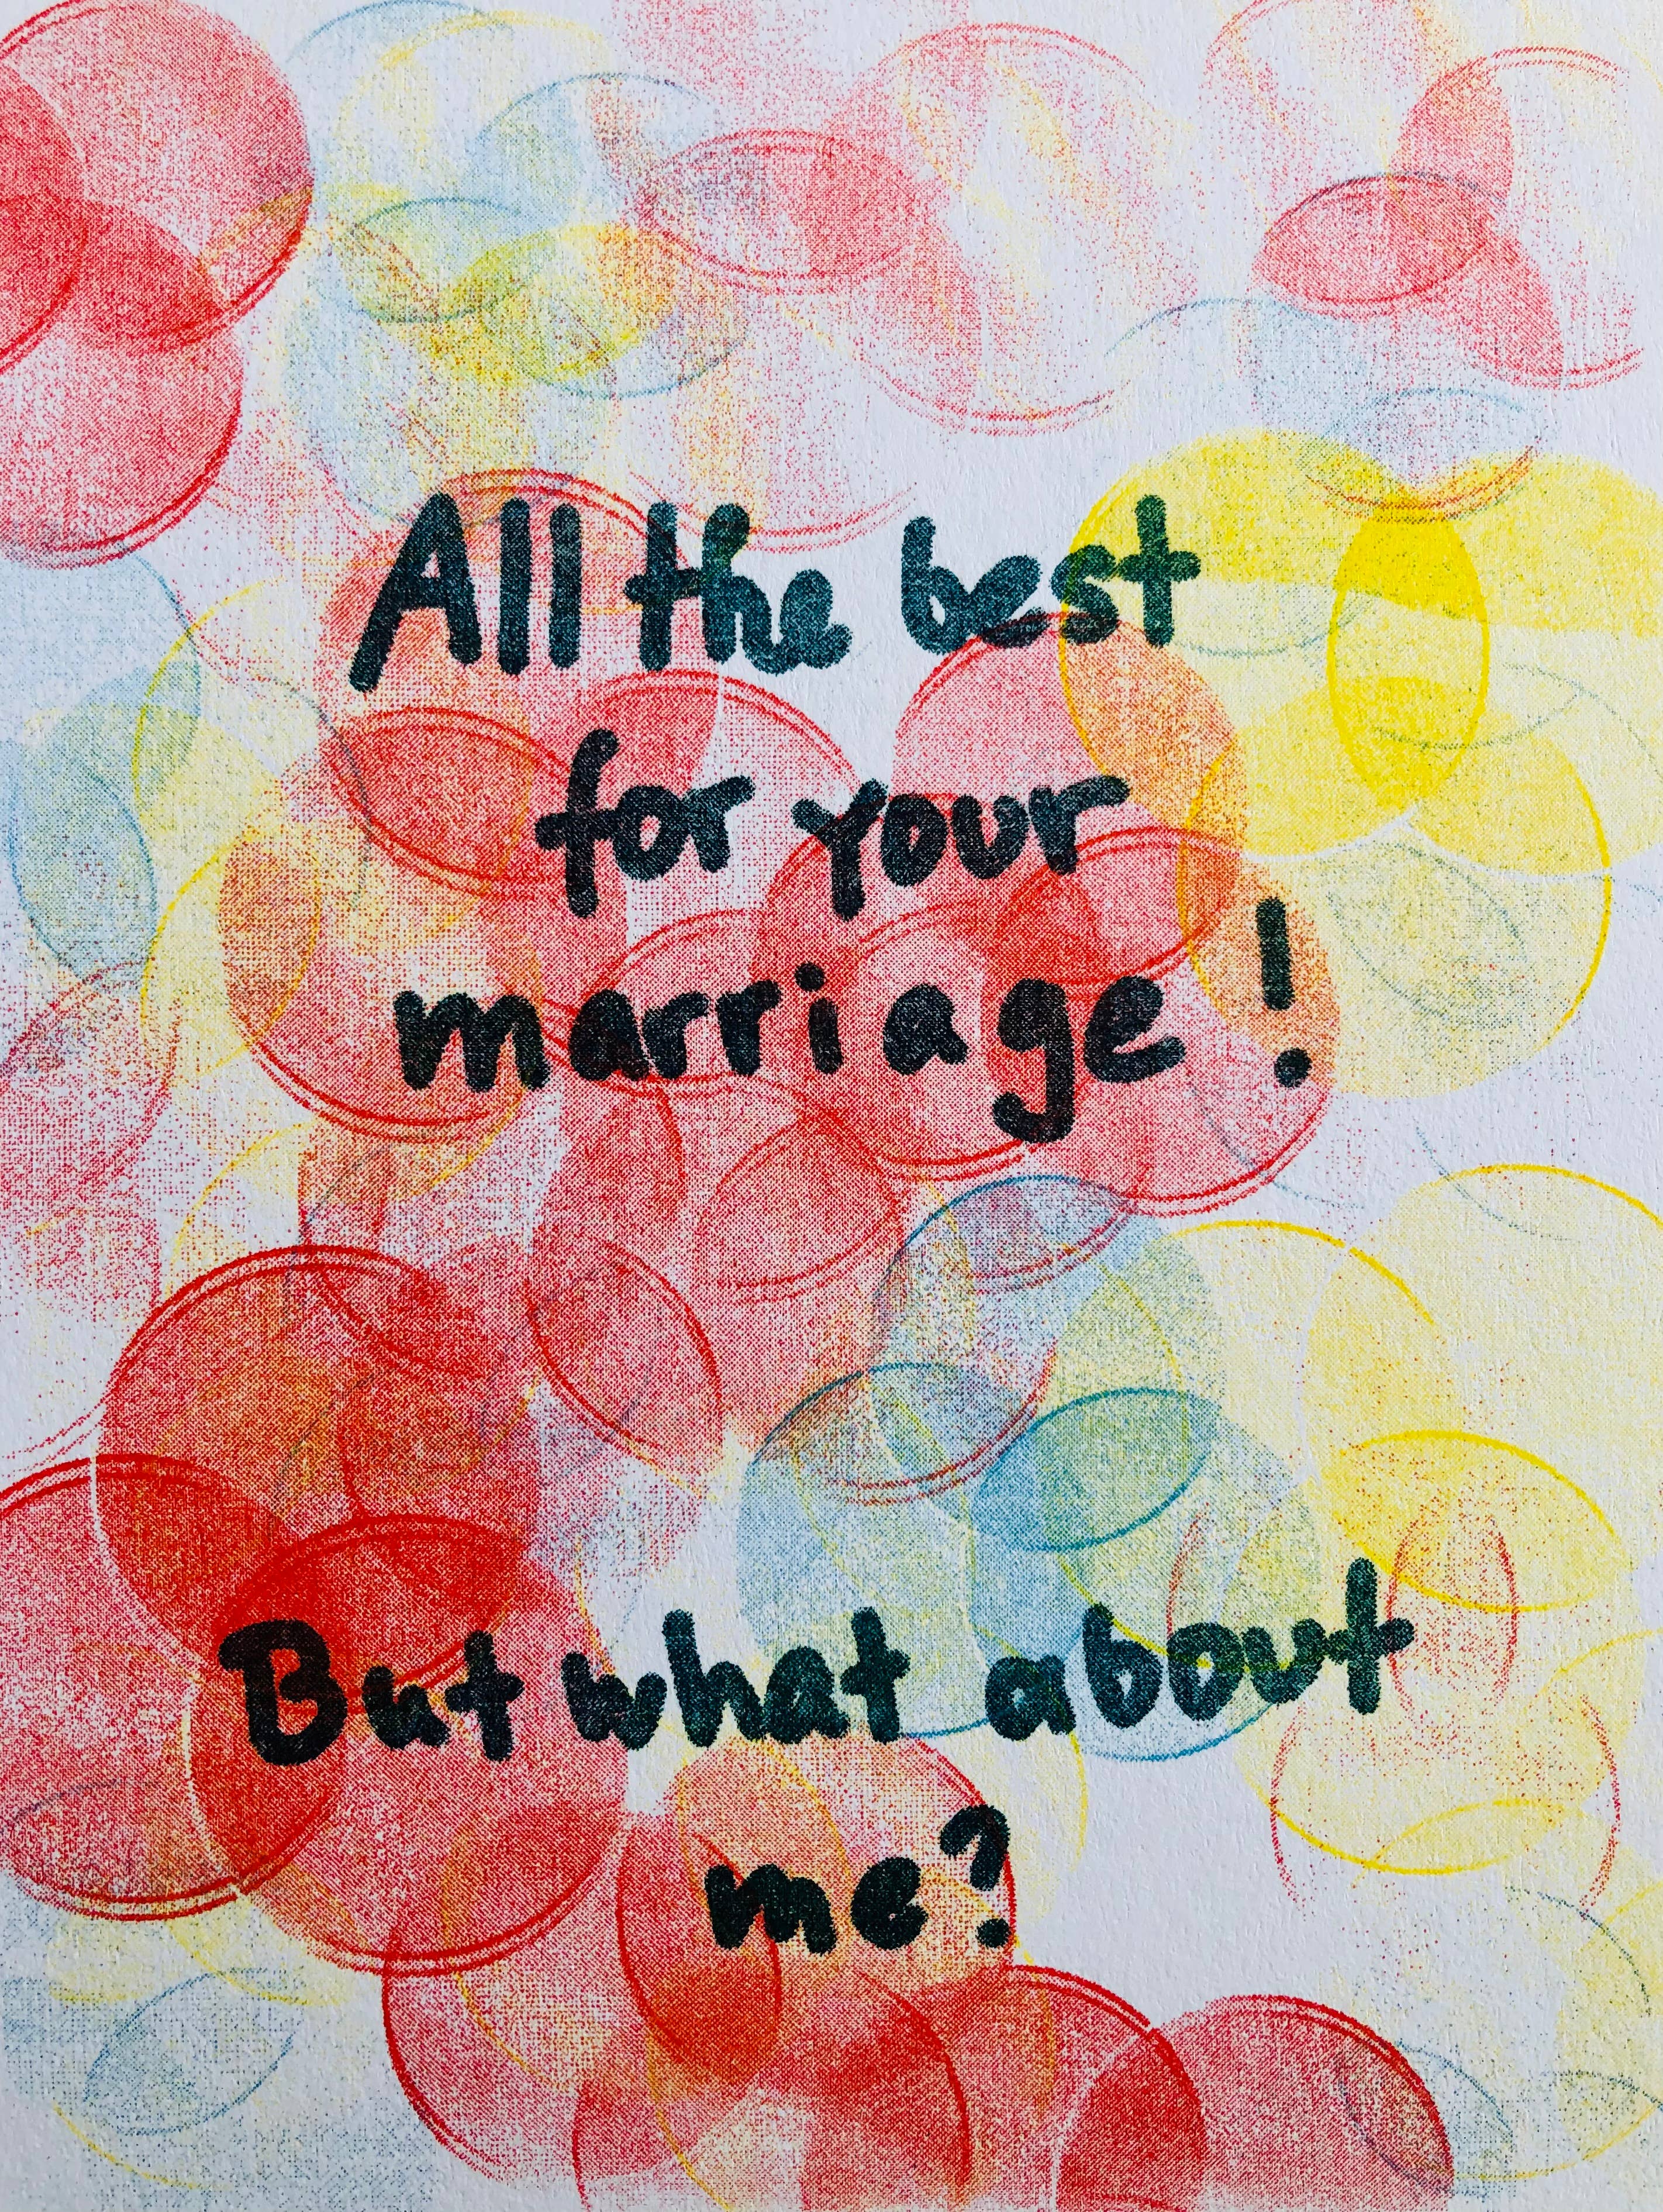 All the best
for your
marriage!
But what about
me?